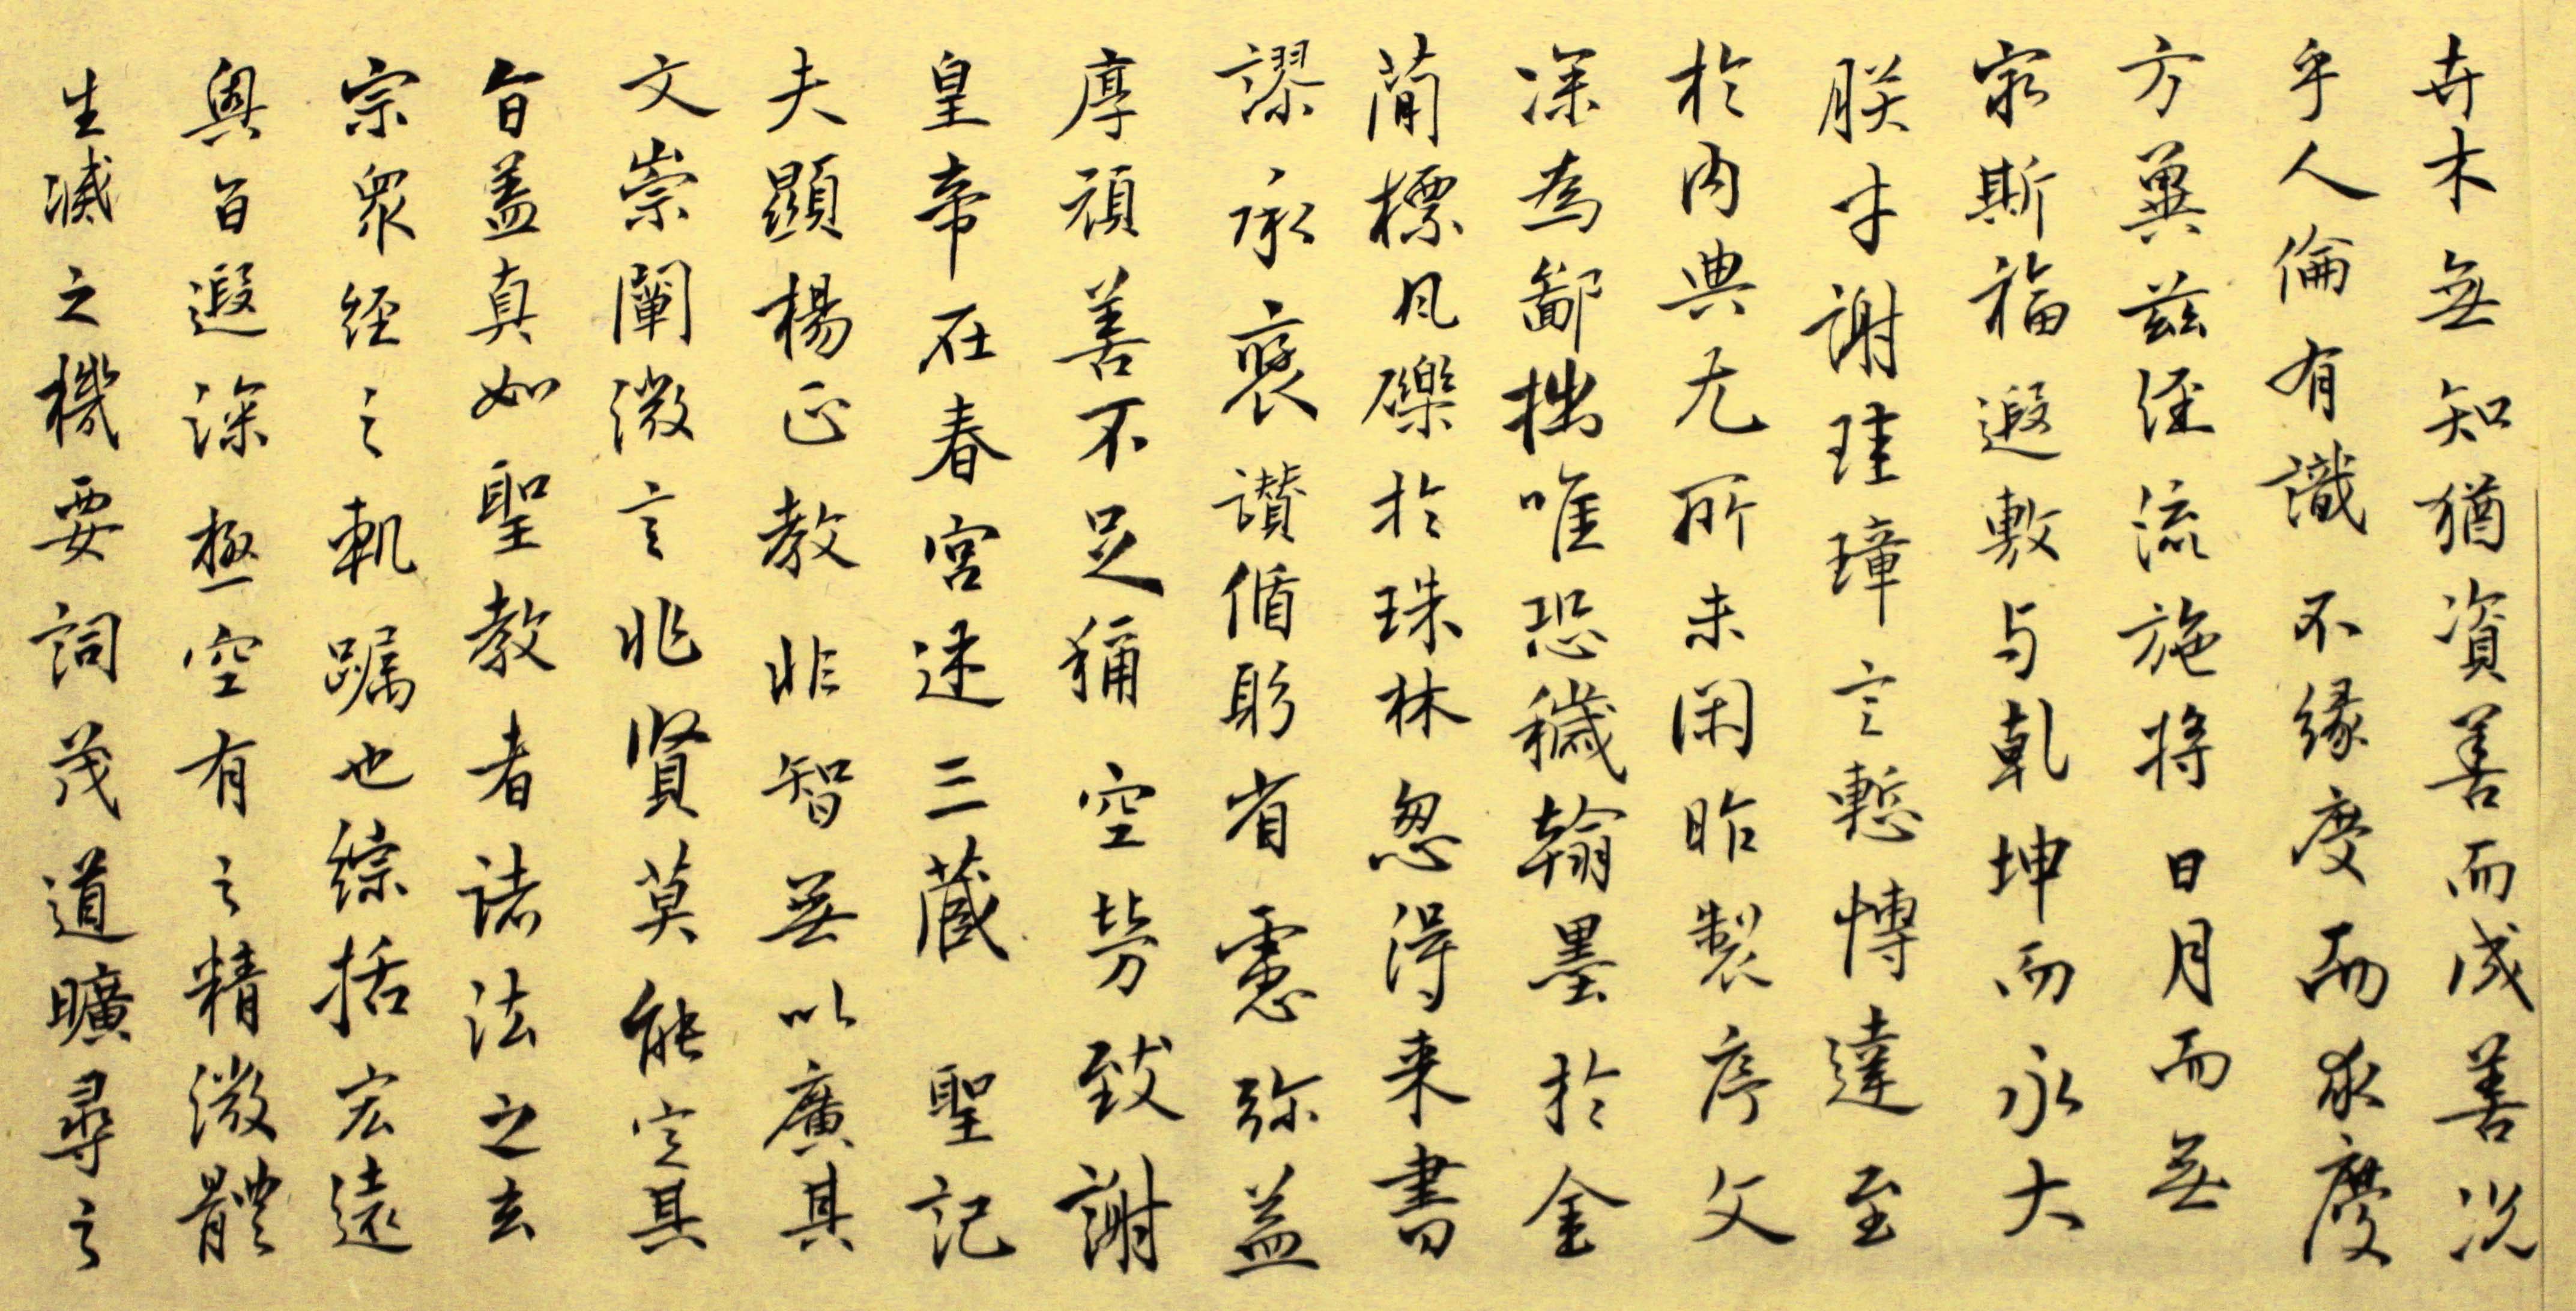 卉木無知猶資善而成善況
乎人倫有識不緣慶而求慶
方冀茲經流施將日月而無
窮斯福遐敷与乾坤而永大
朕才謝珪璋言慙博達至
於内典尤所未閑昨製序文
深為鄙拙唯恐穢翰墨於金
簡標凡礫於珠林忽得来書
謬承褒讚循躬省慮弥益
厚顔善不足稱空勞致謝
皇帝在春宮述三藏聖記
夫顯楊正教非智無以廣其
文崇闡微言非賢莫能定其
旨蓋真如聖教者諸法之玄
宗眾經之軌躅也綜括宏遠
奥旨遐深極空有之精微體
生滅之機要詞茂道曠尋之